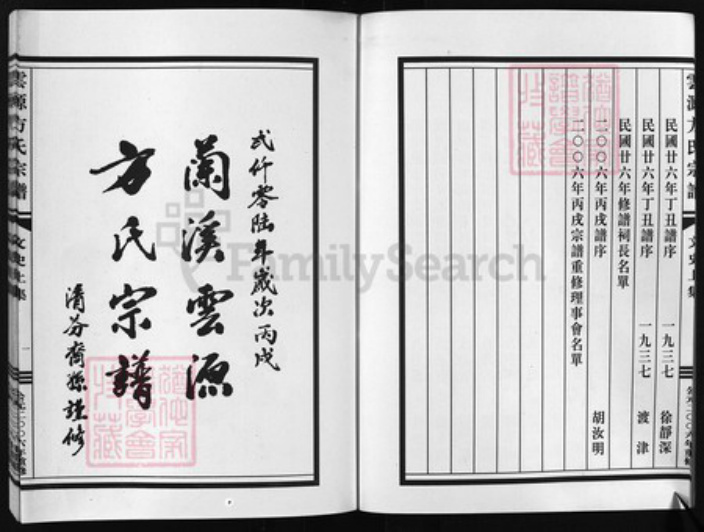 雲源方氏宗譜
文史上集
民國廿六年丁丑譜序 一九三七 徐靜深
民國廿六年丁丑譜序 一九三七 渡津
民國廿六年修譜祠長名單
二〇〇六年丙戌譜序 胡汝明
二〇〇六年丙戌宗譜重修理事會名單
FamilySearch
貳仟零陸年歲次丙戌
蘭溪雲源
方氏宗譜
清芬裔孫謹修
雲源方氏宗譜
文史上集
一